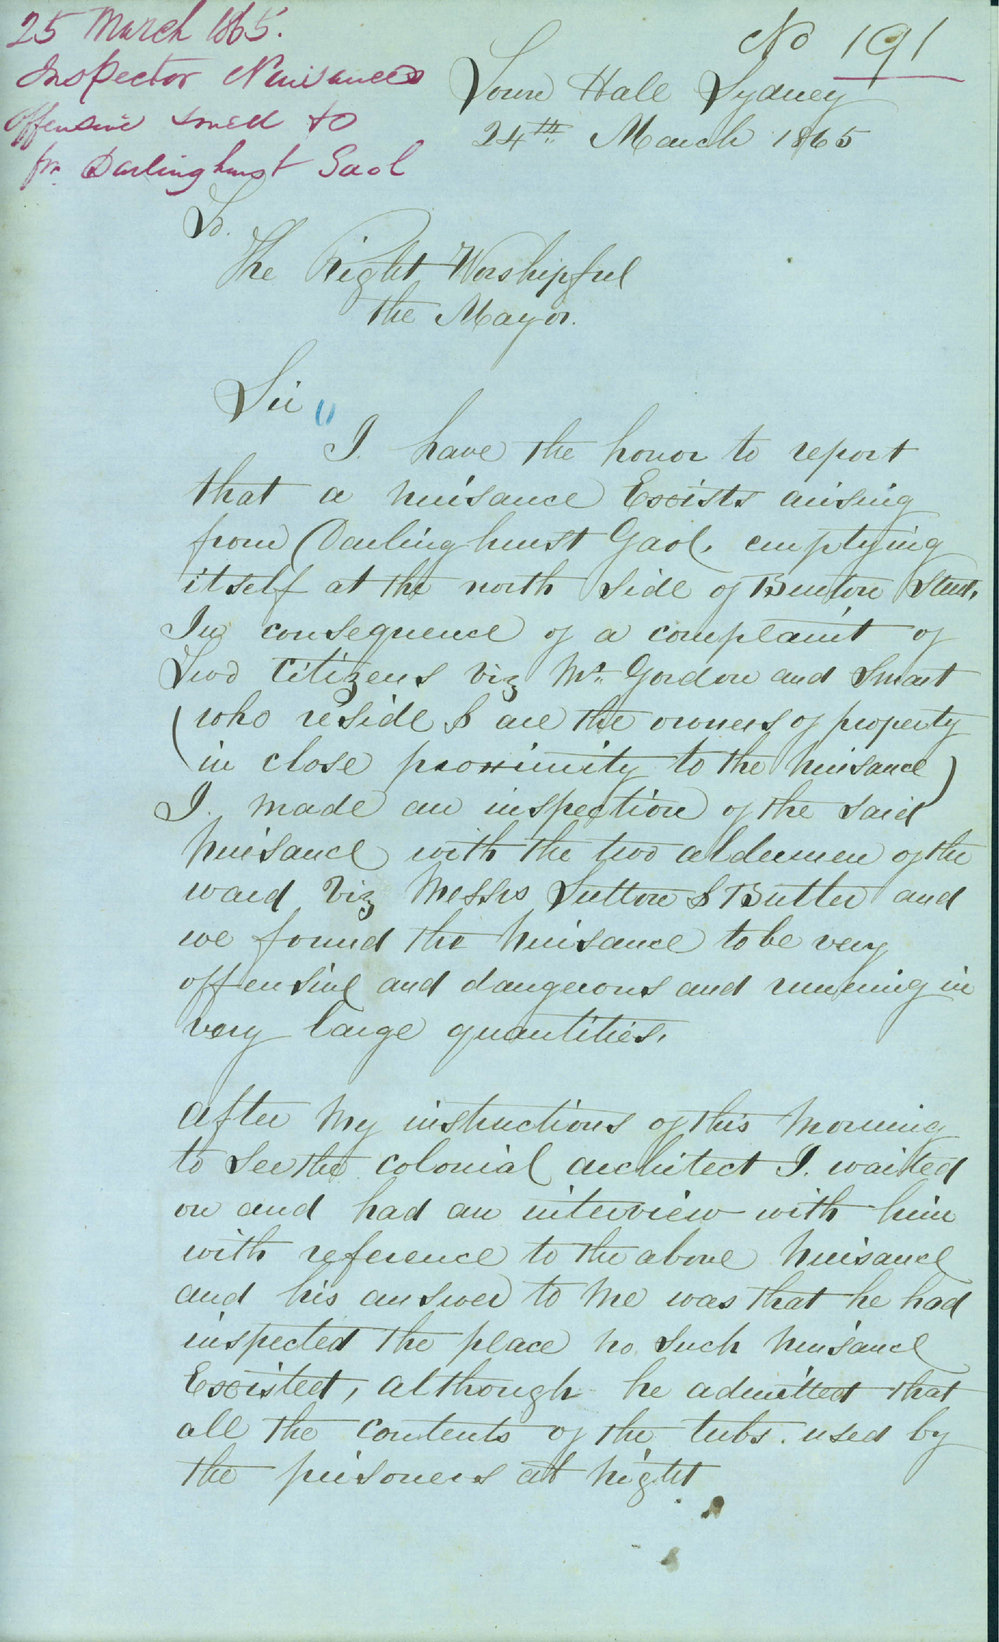 25 March 1865.
Inspector Nuisances
Offensive smell to
fm Darlinghurst Gaol
No 191
Town Hall Sydney
24th March 1865
To.
The Right Worshipful
the Mayor.
Sir
I have the honor to report
that a nuisance Exists arising
from Darlinghurst Gaol, emptying
itself at the north side of Burton Street,
In consequence of a complaint of
Two Citizens viz Mr. Gordon and Smart
(who reside & are the owners of property
in close proximity to the nuisance)
I made an inspection of the said
nuisance with the two aldermen of the
ward viz Messrs Sutton & Butler and
we found the nuisance to be very
offensive and dangerous and running in
very large quantities.
After my instructions of this morning
to see the colonial architect I waited
on and had an interview with him
with reference to the above nuisance
and his answer to me was that he had
inspected the place no such nuisance
Existed, although he admitted that
all the contents of the tubs used by
the prisoners at night